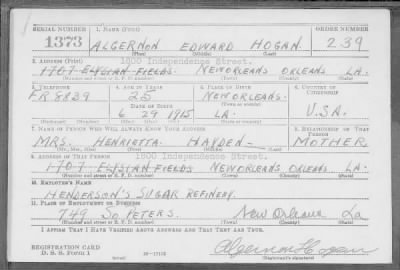 SERIAL NUMBER 1. NAME (Print) ORDER NUMBER
1373 ALGERNON EDWARD HOGAN 239
(First) (Middle) (Last)
1800 Independence Street.
2. ADDRESS (Print)
1707 ELYSIAN FIELDS. NEW ORLEANS ORLEANS LA.
(Number and street or R. F. D. number) (Town) (County) (State)
3. TELEPHONE 4. AGE IN YEARS 5. PLACE OF BIRTH 6. COUNTRY OF CITIZENSHIP
FR 8839 25 NEW ORLEANS.
DATE OF BIRTH (Town or county) U.S.A.
6 29 1915 LA.
(Exchange) (Number) (Mo.) (Day) (Yr.) (State or country)
7. NAME OF PERSON WHO WILL ALWAYS KNOW YOUR ADDRESS 8. RELATIONSHIP OF THAT PERSON
MRS. HENRIETTA HAYDEN MOTHER.
(Mr., Mrs., Miss) (First) (Middle) (Last)
1800 Independence Street.
9. ADDRESS OF THAT PERSON
1707 ELYSIAN FIELDS NEW ORLEANS ORLEANS LA.
(Number and street or R. F. D. number) (Town) (County) (State)
10. EMPLOYER'S NAME
HENDERSON'S SUGAR REFINERY.
11. PLACE OF EMPLOYMENT OR BUSINESS
749 SO. PETERS. New Orleans La
(Number and street or R. F. D. number) (Town) (County) (State)
I AFFIRM THAT I HAVE VERIFIED ABOVE ANSWERS AND THAT THEY ARE TRUE.
REGISTRATION CARD
D. S. S. Form 1 Algernon Hogan
(Registrant's signature)